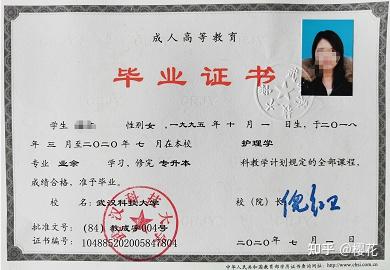 成人高等教育
毕业证书
学生 性别女,一九九五年十月一日生,于二〇一八
年三月至二〇二〇年七月在本校 护理学
专业 业余 学习,修完 专升本 科教学计划规定的全部课程,
成绩合格,准予毕业。
校 名: 武汉科技大学 校(院)长:
批准文号: (84)教成字004号
证书编号: 104885202005847804 二〇二〇年七月二日
中华人民共和国教育部学历证书查询网址: http://www.chsi.com.cn
武汉科技大学
知乎 @樱花